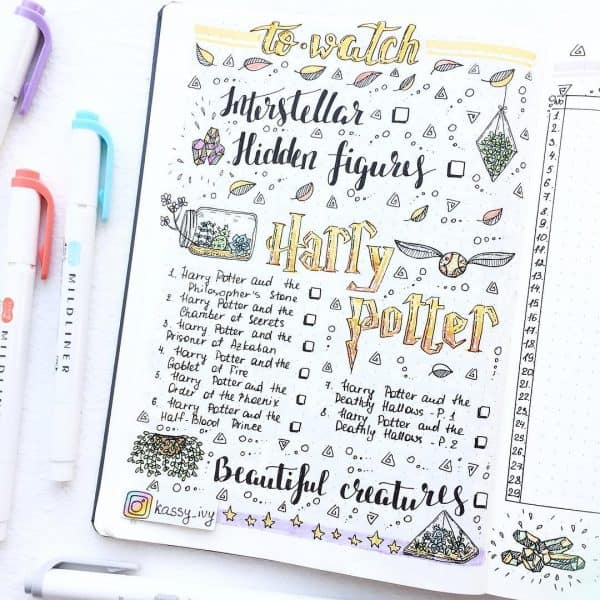 to watch
Interstellar
Hidden figures
Harry
Potter
1. Harry Potter and the
Philosopher's Stone
2. Harry Potter and the
Chamber of Secrets
3. Harry Potter and the
Prisoner of Azkaban
4. Harry Potter and the
Goblet of Fire
5. Harry Potter and the
Order of the Phoenix
6. Harry Potter and the
Half-Blood Prince
7. Harry Potter and the
Deathly Hallows - P. 1
8. Harry Potter and the
Deathly Hallows - P. 2
Beautiful creatures
kassy_ivy
MILDLINER
MILDLINER
1
2
3
4
5
6
7
8
9
10
11
12
13
14
15
16
17
18
19
20
21
22
23
24
25
26
27
28
29